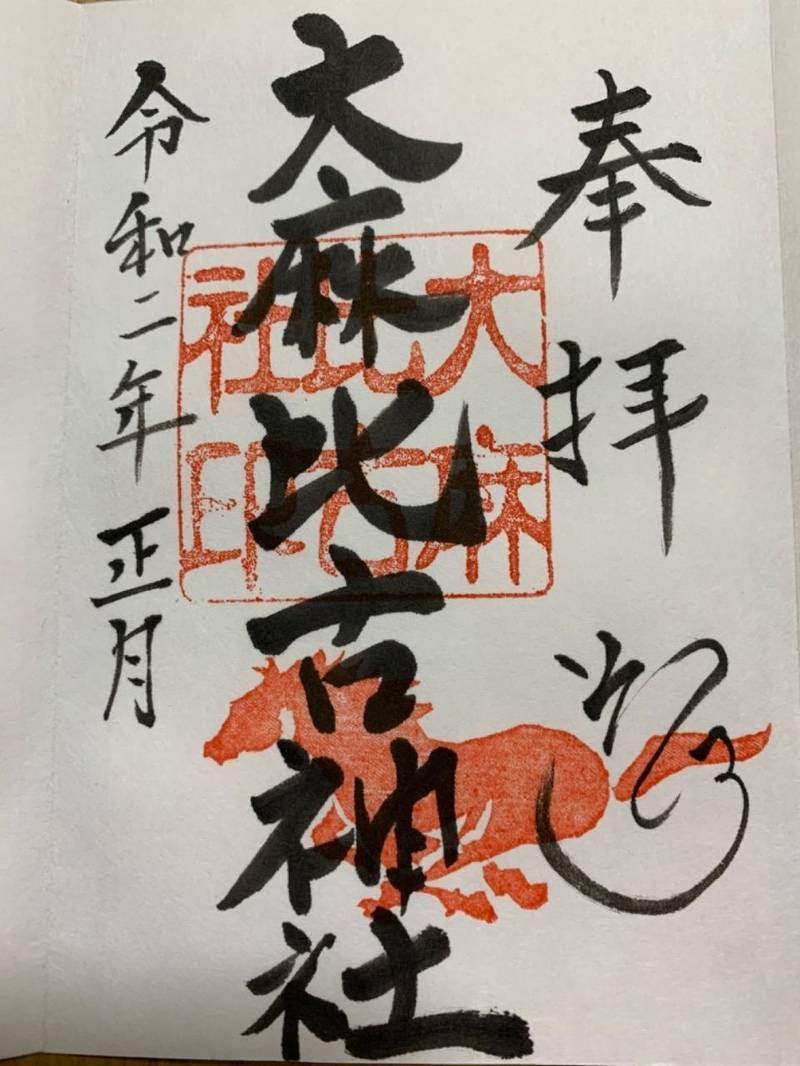 奉拝
大麻比古神社
大麻
比古
社印
令和二年正月